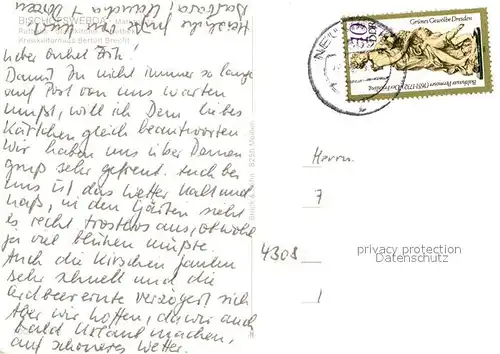 BISCHOFSWERDA
Krankenhaus Bertolt Brecht
Herzliche Grüße von
Barbara
Lieber Onkel Fritz!
Damit Du nicht immer so lange
auf Post von uns warten
mußt, will ich Dein liebes
Kärtchen gleich beantworten
Wir haben uns über Deinen
gruß sehr gefreut. Auch bei
uns ist das Wetter kalt und
naß, in den Gärten sieht
es recht trostlos aus, obwohl
ja viel blühen müßte.
Auch die Kirschen faulen
sehr schnell und die
Erdbeerernte verzögert sich
Aber wir hoffen, da wir auch
bald Urlaub machen,
auf schöneres Wetter.
Grünes Gewölbe Dresden
50
DDR
Balthasar Permoser (1651-1732)
Herrn
7
4308
1
privacy protection
Datenschutz